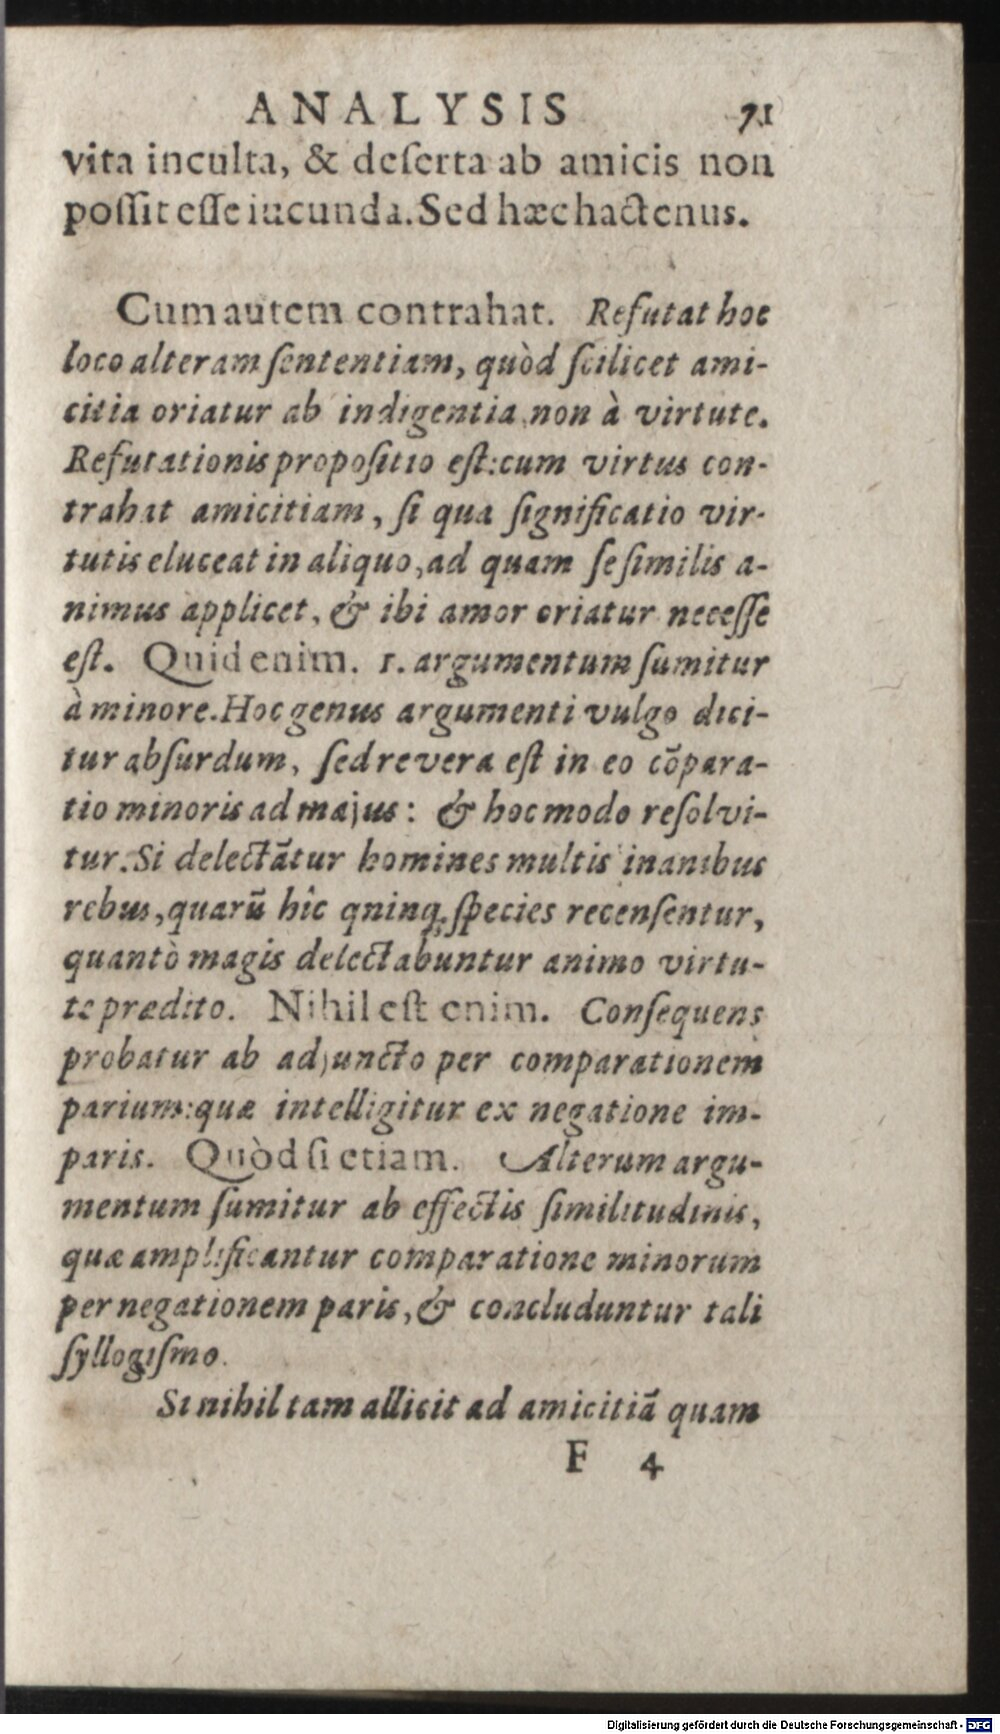 ANALYSIS 71
vita inculta, & deſerta ab amicis non
poſſit eſſe iucunda. Sed hæc hactenus.
Cum autem contrahat. Refutat hoc
loco alteram ſententiam, quòd ſcilicet ami-
citia oriatur ab indigentia non à virtute.
Refutationis propoſitio eſt: cum virtus con-
trahat amicitiam, ſi qua ſignificatio vir-
tutis eluceat in aliquo, ad quam ſe ſimilis a-
nimus applicet, & ibi amor oriatur neceſſe
eſt. Quid enim. 1. argumentum ſumitur
à minore. Hoc genus argumenti vulgo dici-
tur abſurdum, ſed revera eſt in eo cõpara-
tio minoris ad majus: & hoc modo reſolvi-
tur. Si delectãtur homines multis inanibus
rebus, quarũ hîc qninq; ſpecies recenſentur,
quantò magis delectabuntur animo virtu-
te prædito. Nihil eſt enim. Conſequens
probatur ab adjuncto per comparationem
parium: quæ intelligitur ex negatione im-
paris. Quòd ſi etiam. Alterum argu-
mentum ſumitur ab effectis ſimilitudinis,
quæ amplificantur comparatione minorum
per negationem paris, & concluduntur tali
ſyllogiſmo.
Si nihil tam allicit ad amicitiã quam
F 4
Digitalisierung gefördert durch die Deutsche Forschungsgemeinschaft - DFG